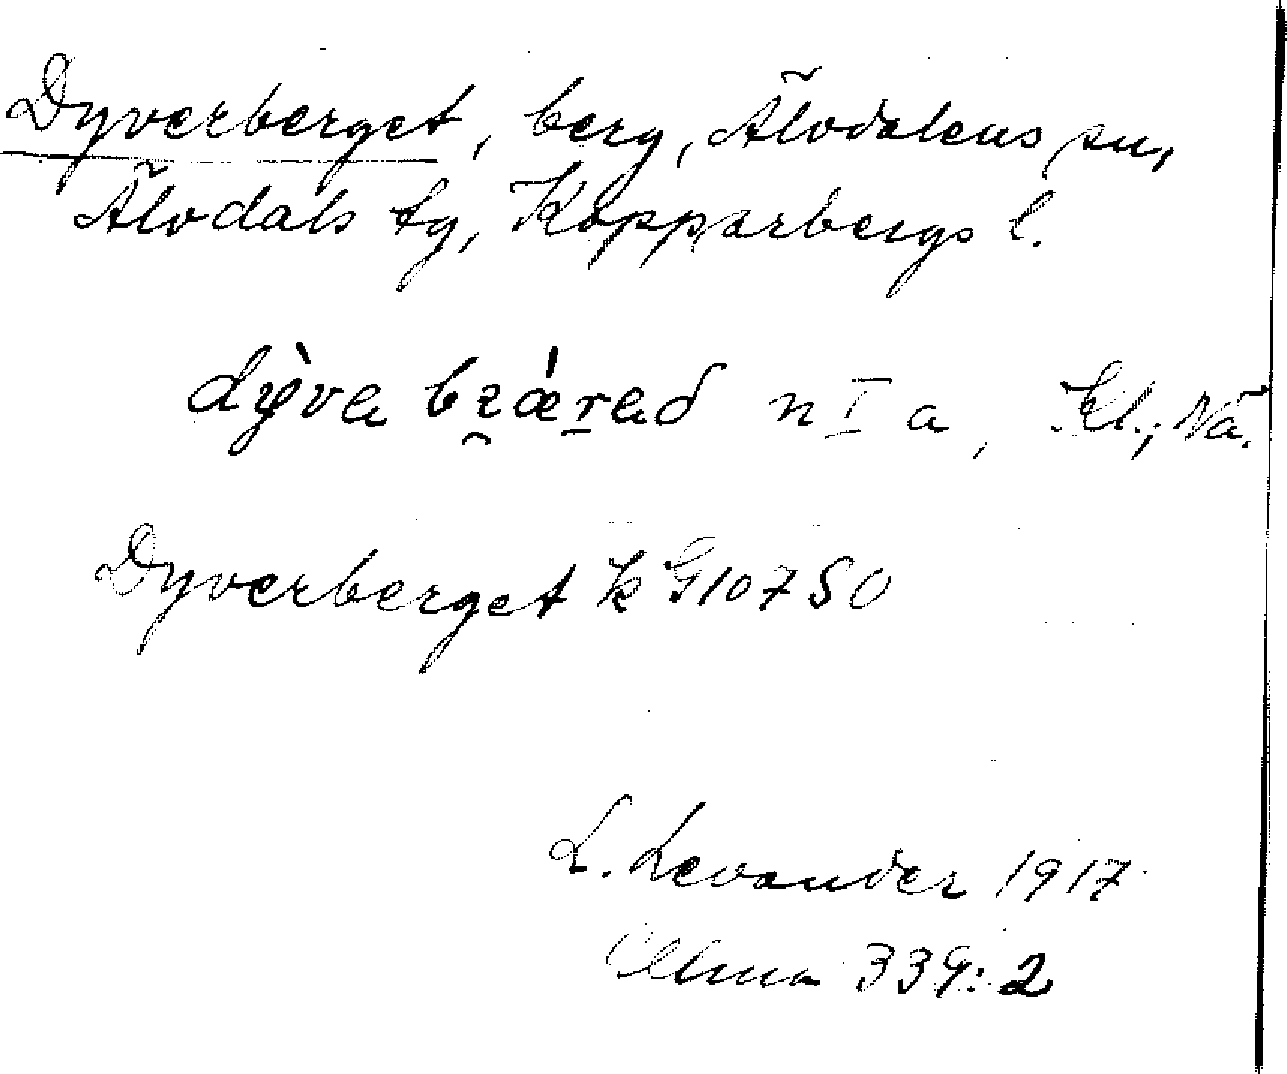 Dyverberget, berg, Älvdalens sn,
Älvdals tg, Kopparbergs l.
dỳva bzǽrad n I a, Kl., Nä.
Dyverberget k G107 SO
L. Levander 1917
Ullma 339:2